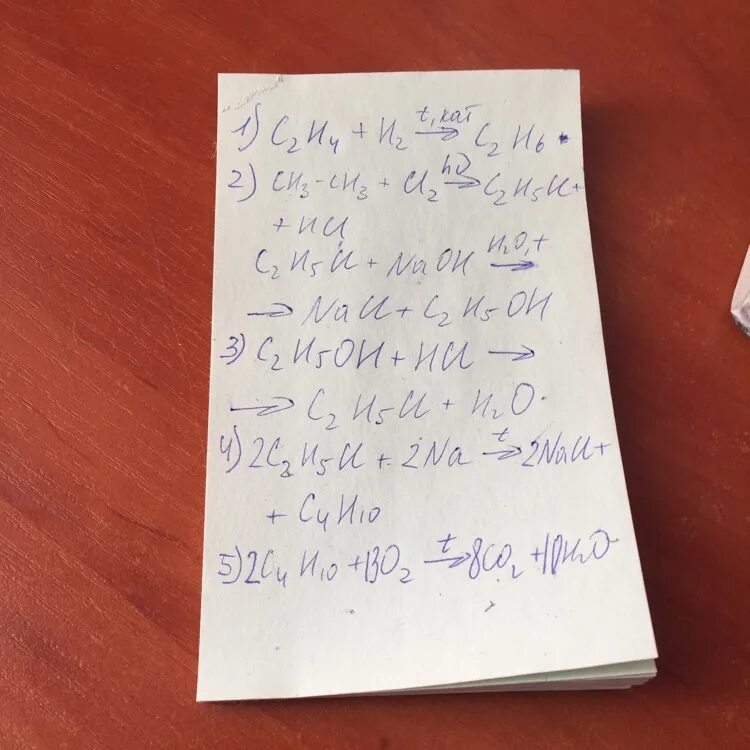 1) C₂H₄ + H₂ →(t, кат) C₂H₆.
2) CH₃-CH₃ + Cl₂ →(hν) C₂H₅Cl +
+ HCl
C₂H₅Cl + NaOH →(H₂O, t)
→ NaCl + C₂H₅OH
3) C₂H₅OH + HCl →
→ C₂H₅Cl + H₂O.
4) 2C₂H₅Cl + 2Na →(t) 2NaCl +
+ C₄H₁₀
5) 2C₄H₁₀ + 13O₂ →(t) 8CO₂ + 10H₂O